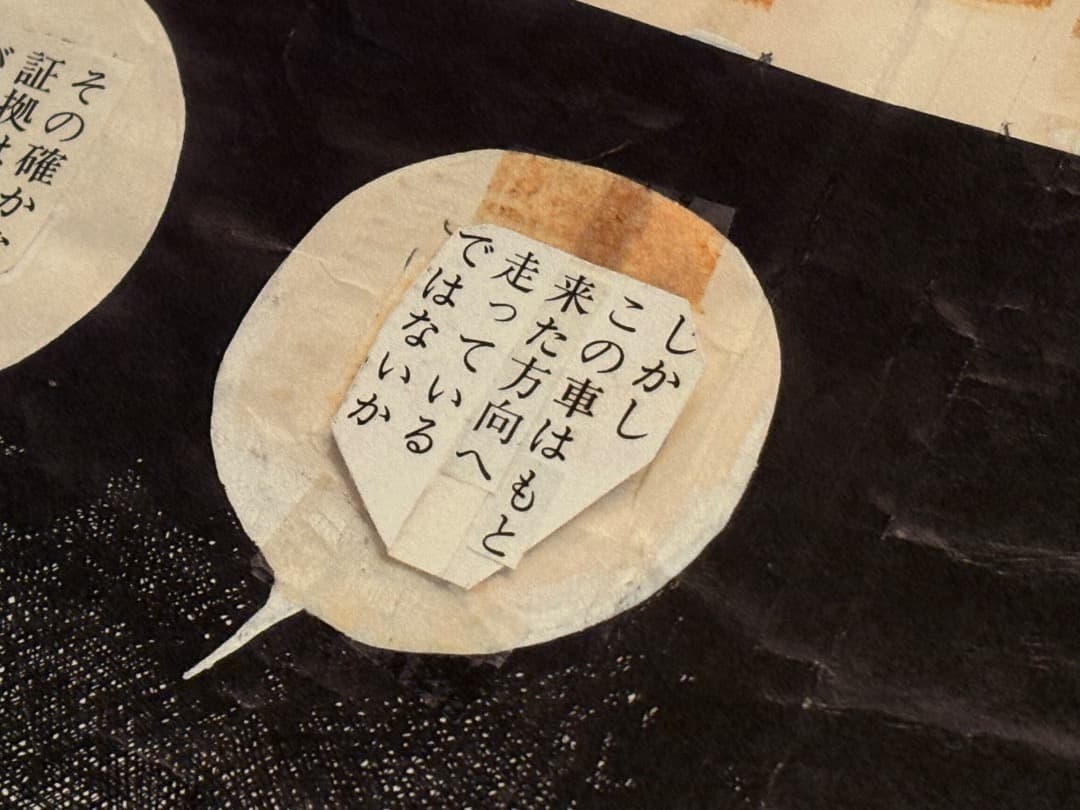 しかし
この車はもと
来た方向へ
走っている
ではないか
その確か
証拠は